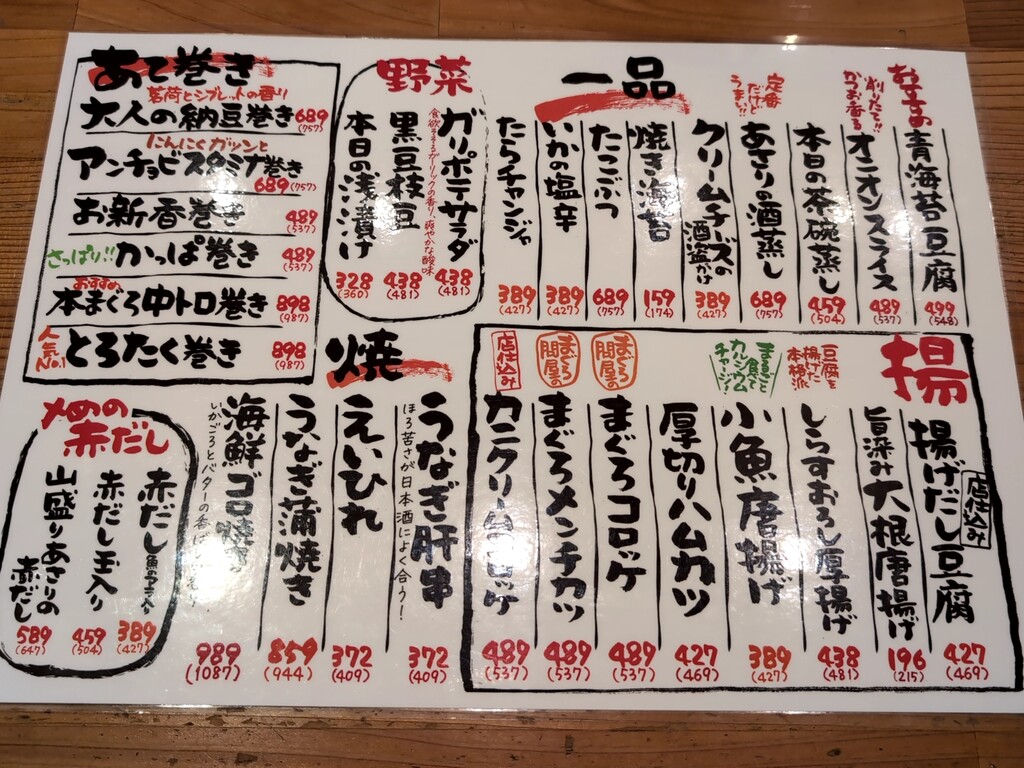 あて巻き
茗荷とシブレットの香り
大人の納豆巻き
689
(757)
にんにくガツンと
アンチョビスタミナ巻き
689(757)
お新香巻き
489
(537)
さっぱり!!かっぱ巻き
489
(537)
おすすめ
本まぐろ中トロ巻き
898
(987)
人気No.1
とろたく巻き
898
(987)
野菜
ガリポテサラダ
食欲そそるガーリックの香り、爽やかな酸味
438
(481)
黒豆枝豆
438
(481)
本日の浅漬け
328
(360)
一品
おすすめ
青海苔豆腐
499
(548)
削りたて!!かつお香る
オニオンスライス
489
(537)
本日の茶碗蒸し
459
(504)
定番だけどうまい!!
あさりの酒蒸し
689
(757)
クリームチーズの
酒盗かけ
389
(427)
焼き海苔
159
(174)
たこぶつ
689
(757)
いかの塩辛
389
(427)
たらチャンジャ
389
(427)
揚
店仕込み
揚げだし豆腐
427
(469)
旨深み大根唐揚げ
196
(215)
豆腐を
揚げた
本格派
しらすおろし厚揚げ
438
(481)
まるごと
食べて
カルシウム
チャージ!
小魚唐揚げ
389
(427)
厚切りハムカツ
427
(469)
まぐろ問屋の
まぐろコロッケ
489
(537)
まぐろ問屋の
まぐろメンチカツ
489
(537)
店仕込み
カニクリームコロッケ
489
(537)
焼
うなぎ肝串
ほろ苦さが日本酒によく合う!
372
(409)
えいひれ
372
(409)
うなぎ蒲焼き
859
(944)
海鮮ゴロ焼き
いかごろとバターの香ば
989
(1087)
〆めの
赤だし
赤だし魚入り
389
(427)
赤だし玉入り
459
(504)
山盛りあさりの
赤だし
589
(647)